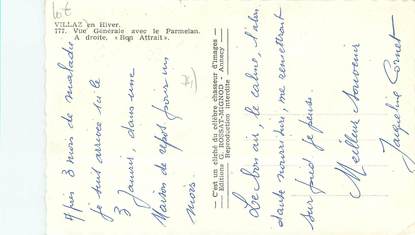 VILLAZ en Hiver.
777. Vue Générale avec le Parmelan.
A droite, « Bon Attrait ».
Après 3 mois de maladie
je suis arrivée ici le
3 Janvier, dans une
Maison de repos pour un
mois.
— C'est un cliché du célèbre chasseur d'images —
Editions G. ROSSAT-MIGNOD - Annecy
Reproduction interdite
Le bon air, le calme, l'abon
dante nourriture, me remettront
sur pied je pense.
Meilleur souvenir
Jacqueline Cornet